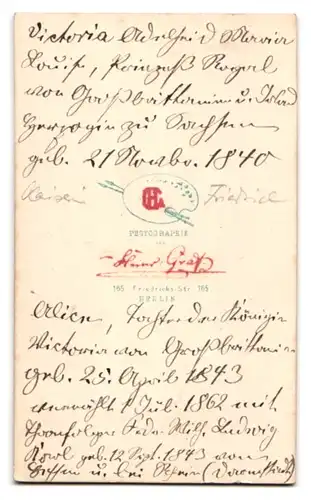 Victoria Adelheid Maria
Louise, Prinzeß Royal
von Großbrittanien u. Irland
Herzogin zu Sachsen
geb. 21 Novbr. 1840
Kaiserin Friedrich
PHOTOGRAPHIE
VON
Hans Graf
165 Friedrichs-Str. 165
BERLIN
Alice, Tochter der Königin
Victoria von Großbrittanien
geb. 25. April 1843
vermählt 1 Jul. 1862 mit
Thronfolger Frdr. Wilh. Ludwig
Karl geb. 12 Sept. 1843 von
Hessen u. bei Rhein (Darmstadt)